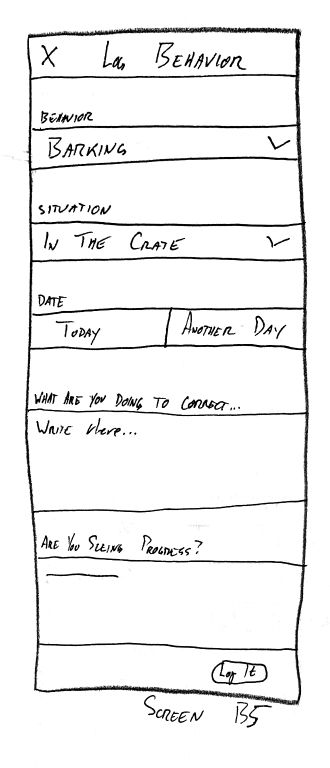 X Log BEHAVIOR
BEHAVIOR
BARKING
SITUATION
IN THE CRATE
DATE
TODAY ANOTHER DAY
WHAT ARE YOU DOING TO CORRECT...
WRITE Here...
ARE YOU SEEING PROGRESS?
Log It
SCREEN B5